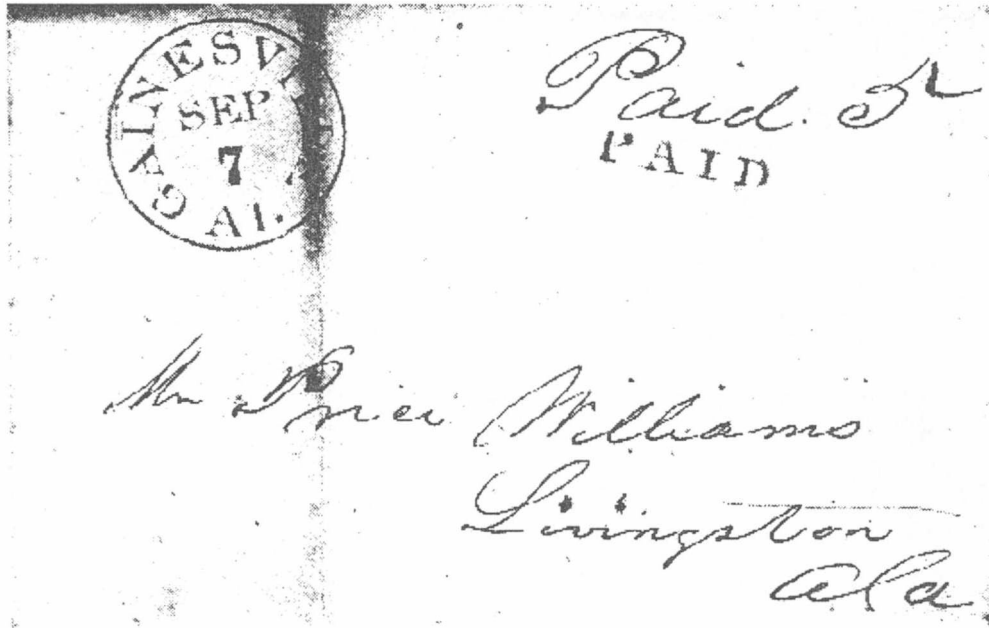 GAINESVILLE
SEP
7
Al.
Paid. 5
PAID
Mr Price Williams
Livingston
Ala